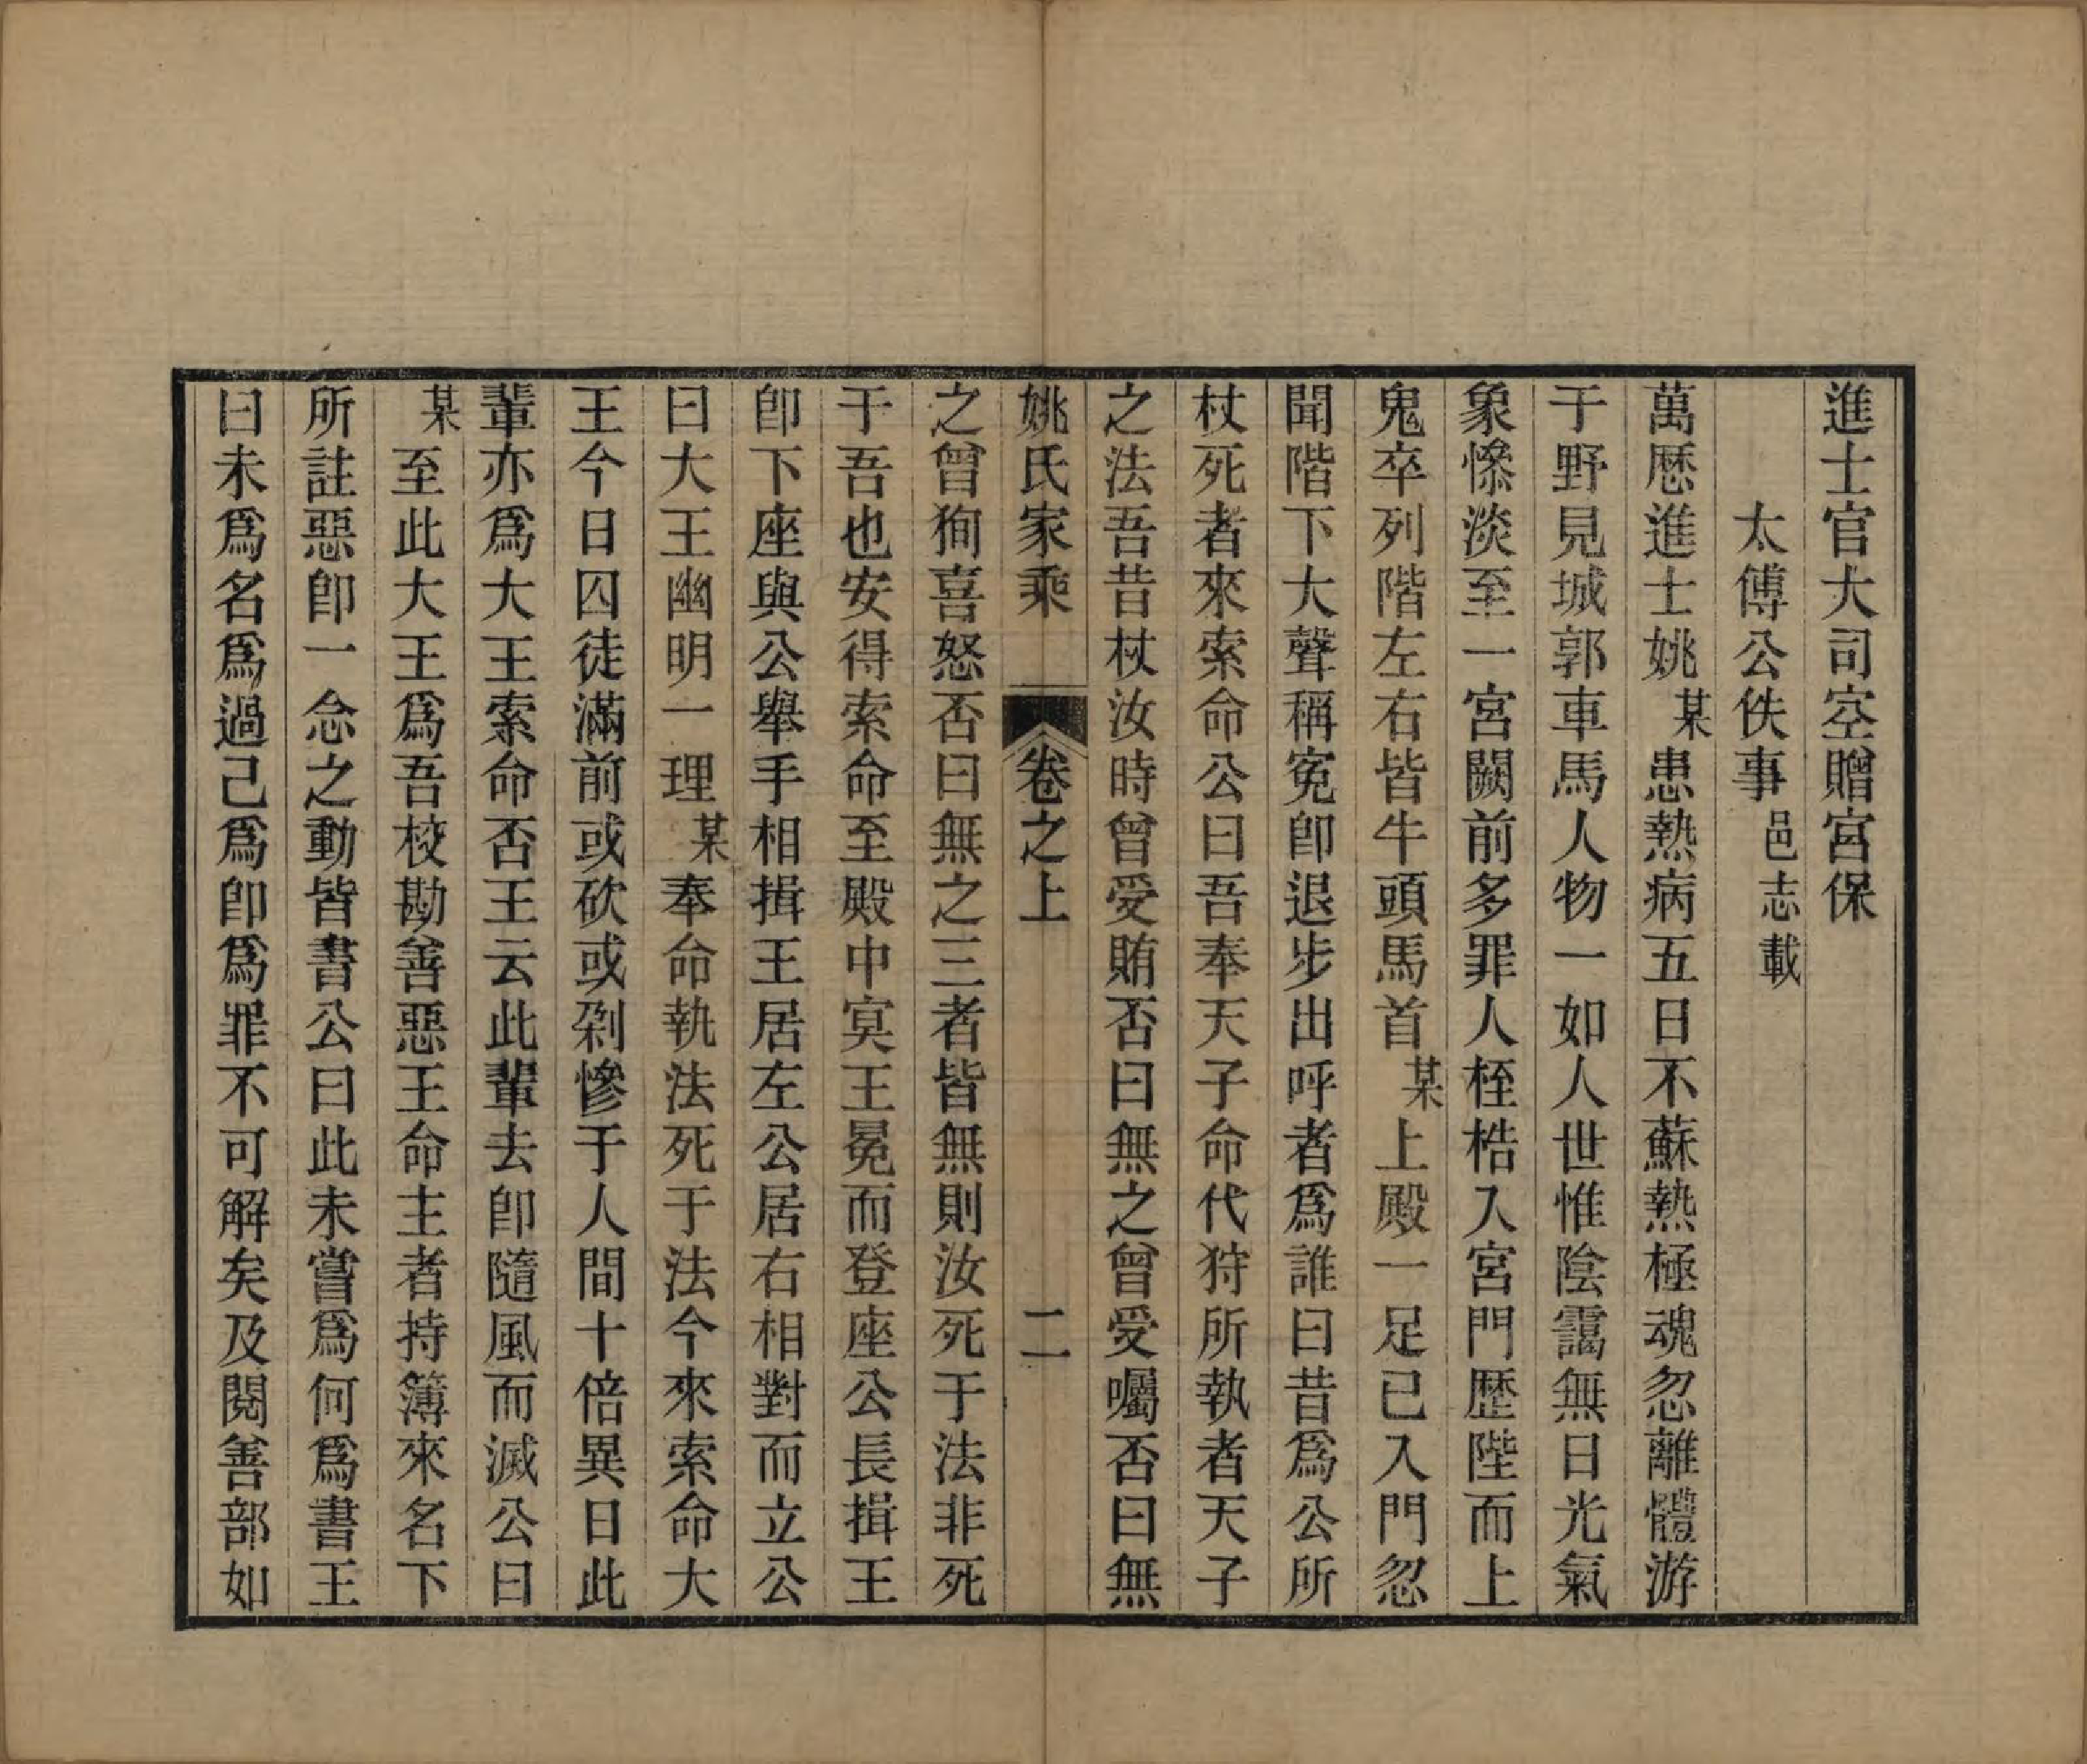 進士官大司空贈宮保
太傅公佚事邑志載
萬厯進士姚某患熱病五日不蘇熱極魂忽離體游
于野見城郭車馬人物一如人世惟陰靄無日光氣
象慘淡至一宮闕前多罪人桎梏入宮門歷陛而上
鬼卒列階左右皆牛頭馬首某上殿一足已入門忽
聞階下大聲稱寃卽退步出呼者爲誰曰昔爲公所
杖死者來索命公曰吾奉天子命代狩所執者天子
之法吾昔杖汝時曾受賄否曰無之曾受囑否曰無
姚氏家乘　卷之上　二
之曾狥喜怒否曰無之三者皆無則汝死于法非死
于吾也安得索命至殿中冥王冕而登座公長揖王
卽下座與公舉手相揖王居左公居右相對而立公
曰大王幽明一理某奉命執法死于法今來索命大
王今日囚徒滿前或砍或剁慘于人間十倍異日此
輩亦爲大王索命否王云此輩去卽隨風而滅公曰
某至此大王爲吾校勘善惡王命主者持簿來名下
所註惡卽一念之動皆書公曰此未嘗爲何爲書王
曰未爲名爲過己爲卽爲罪不可解矣及閱善部如